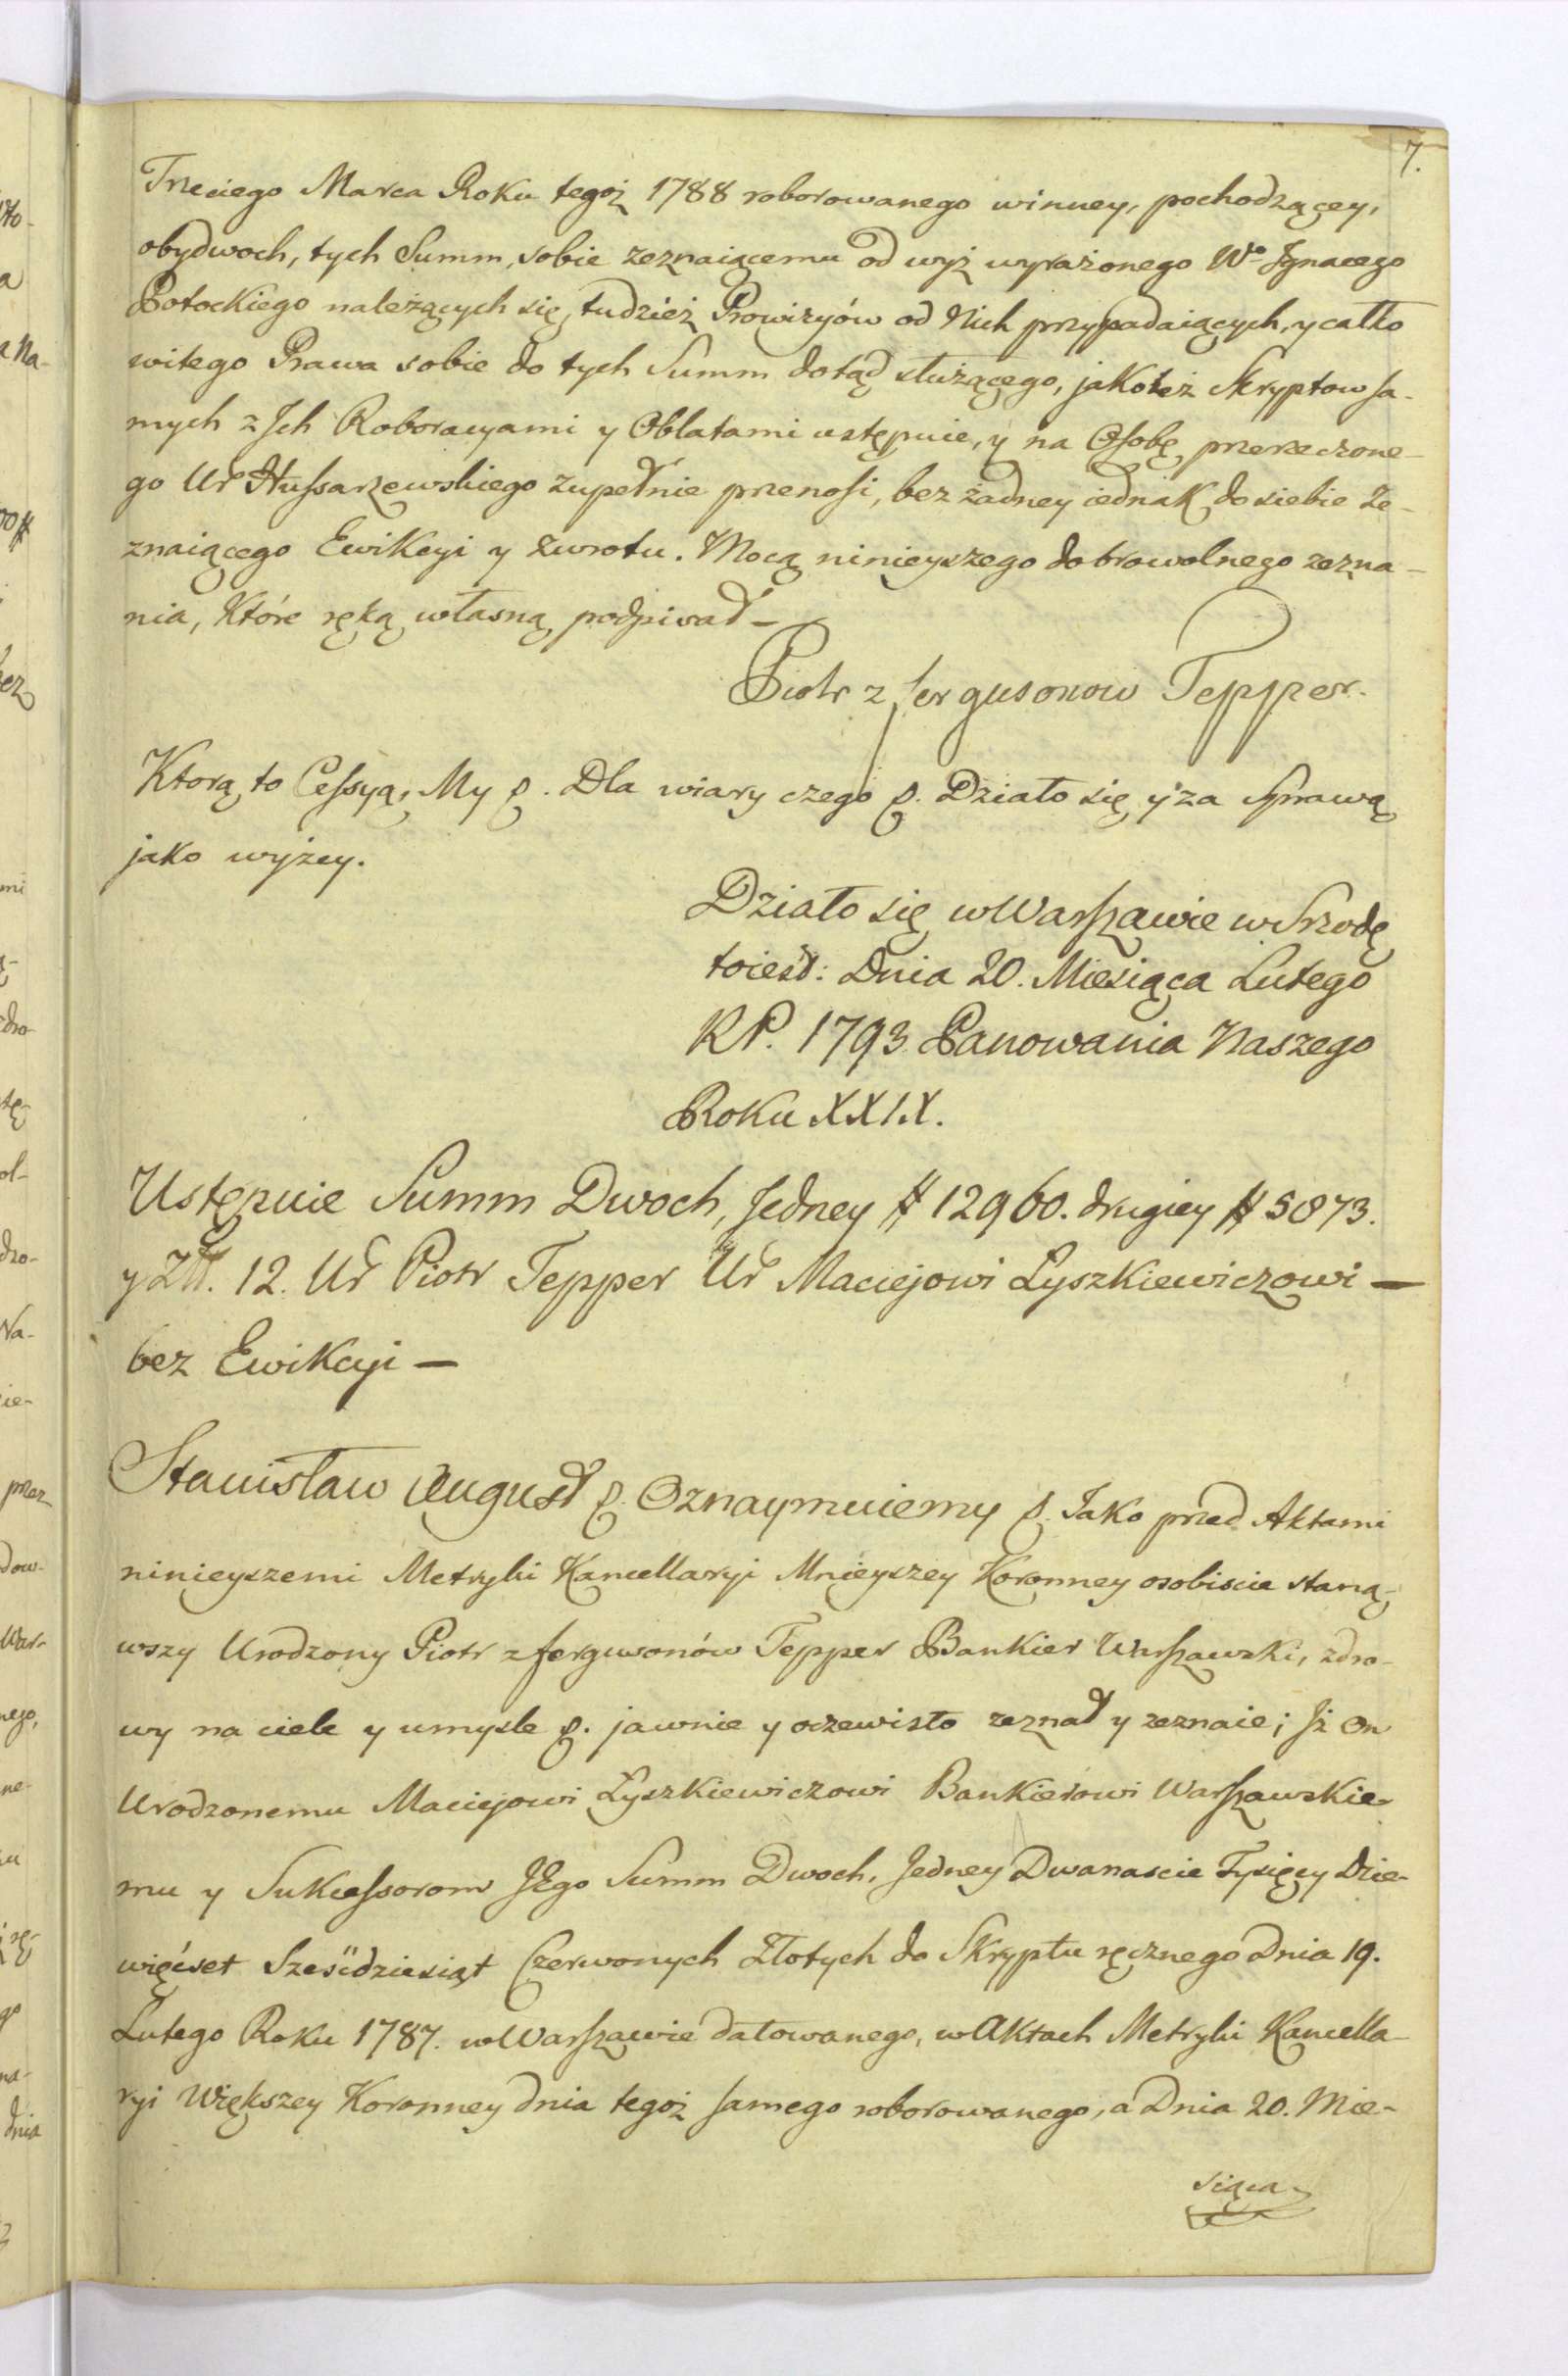 7.
Trzeciego Marca Roku tegoż 1788 roborowanego winney, pochodzącey,
obydwoch, tych Summ, sobie zeznaiącemu od wyż wyrażonego Wo Ignacego
Potockiego należących się, tudzież Prowizyów od Nich przypadaiących, y całko
witego Prawa sobie do tych Summ dotąd służącego, jako też Skryptow sa-
mych z Ich Roboracyami y Oblatami ustępuie, y na Osobę przerzeczone-
go Ur Hussarzewskiego zupełnie przenosi, bez żadney iednak do siebie Ze-
znaiącego Ewikcyi y zwrotu. Mocą ninieyszego dobrowolnego zezna-
nia, które ręką własną podpisał -
Piotr z fergusonow Tepper.
Ktorą to Cessyą, My p. Dla wiary czego p. Działo się y za Sprawą
jako wyżey.
Działo się w Warszawie w Srzodę
toiest: Dnia 20. Miesiąca Lutego
RP. 1793 Panowania Naszego
Roku XXIX.
Ustępuie Summ Dwoch, Jedney # 12960. drugiey # 5873.
y Złł. 12. Ur Piotr Tepper Ur Maciejowi Łyszkiewiczowi —
bez Ewikcyi —
Stanisław August p. Oznaymuiemy p. Jako przed Aktami
ninieyszemi Metryki Kancellaryi Mnieyszey Koronney osobiscie staną-
wszy Urodzony Piotr z fergusonów Tepper Bankier Warszawski, zdro-
wy na ciele y umysle p. jawnie y oczewisto zeznał y zeznaie; Iż On
Urodzonemu Maciejowi Łyszkiewiczowi Bankierowi Warszawskie-
mu y Sukcessorom JEgo Summ Dwoch, Jedney Dwanascie Tysięcy Dzie-
więćset Sześćdziesiąt Czerwonych Złotych do Skryptu ręcznego Dnia 19.
Lutego Roku 1787. w Warszawie datowanego, w Aktach Metryki Kancella-
ryi Większey Koronney dnia tegoż samego roborowanego, a Dnia 20. Mie-
siąca